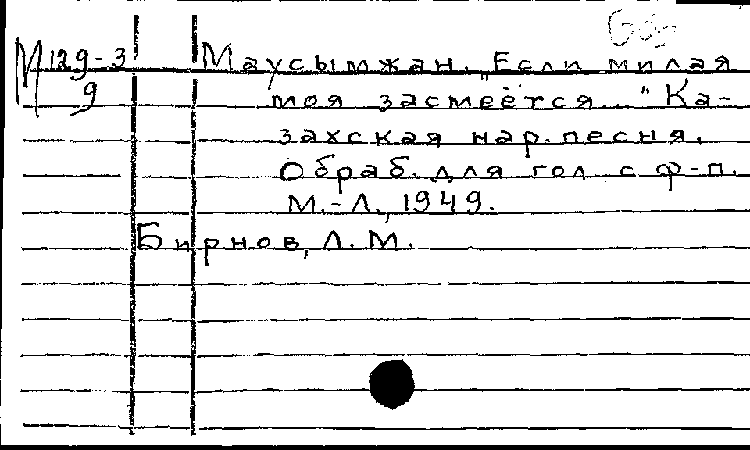 М 129-3
9
Маусымжан. „Если милая
моя засмеётся..." Ка-
захская нар. песня.
Обраб. для гол. с ф-п.
М.-Л., 1949.
Бирнов, Л. М.